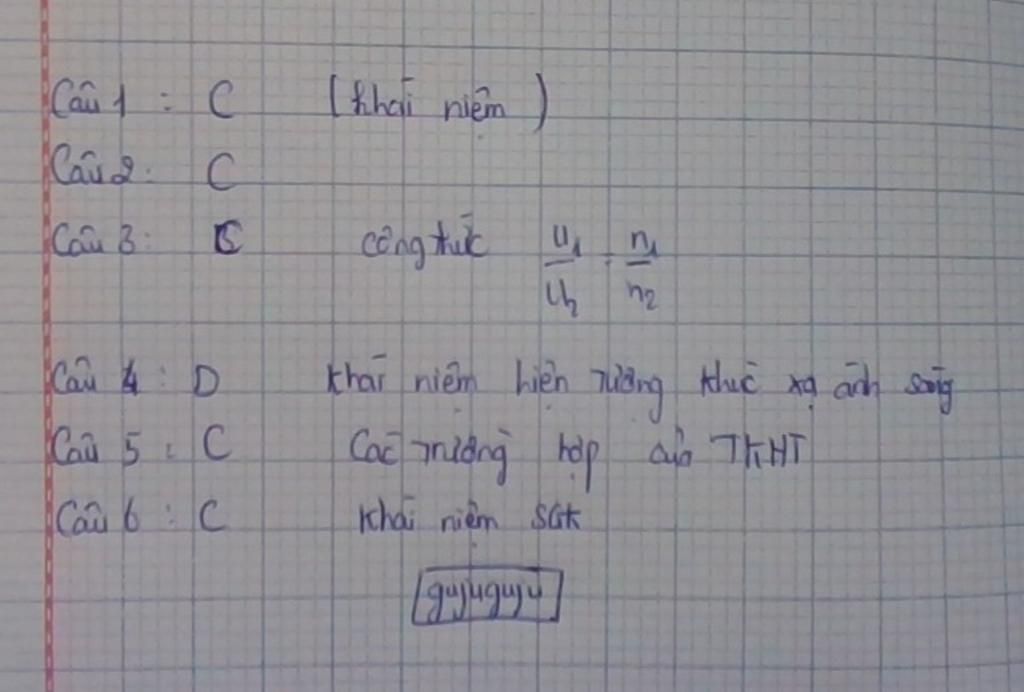 Câu 1 : C (Khái niệm)
Câu 2 : C
Câu 3 : C công thức U1/U2 = n1/n2
Câu 4 : D Khái niệm hiện tượng khúc xạ ánh sáng
Câu 5 : C Các trường hợp của TKHT
Câu 6 : C Khái niệm SGK
gujuguju